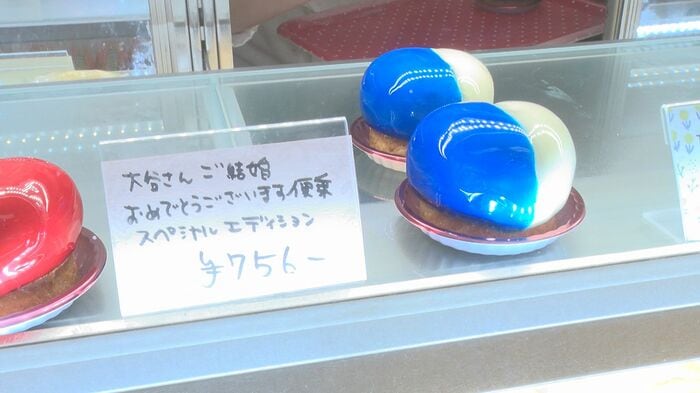 大谷さん ご結婚
おめでとうございます便乗
スペシャル エディション
¥756-